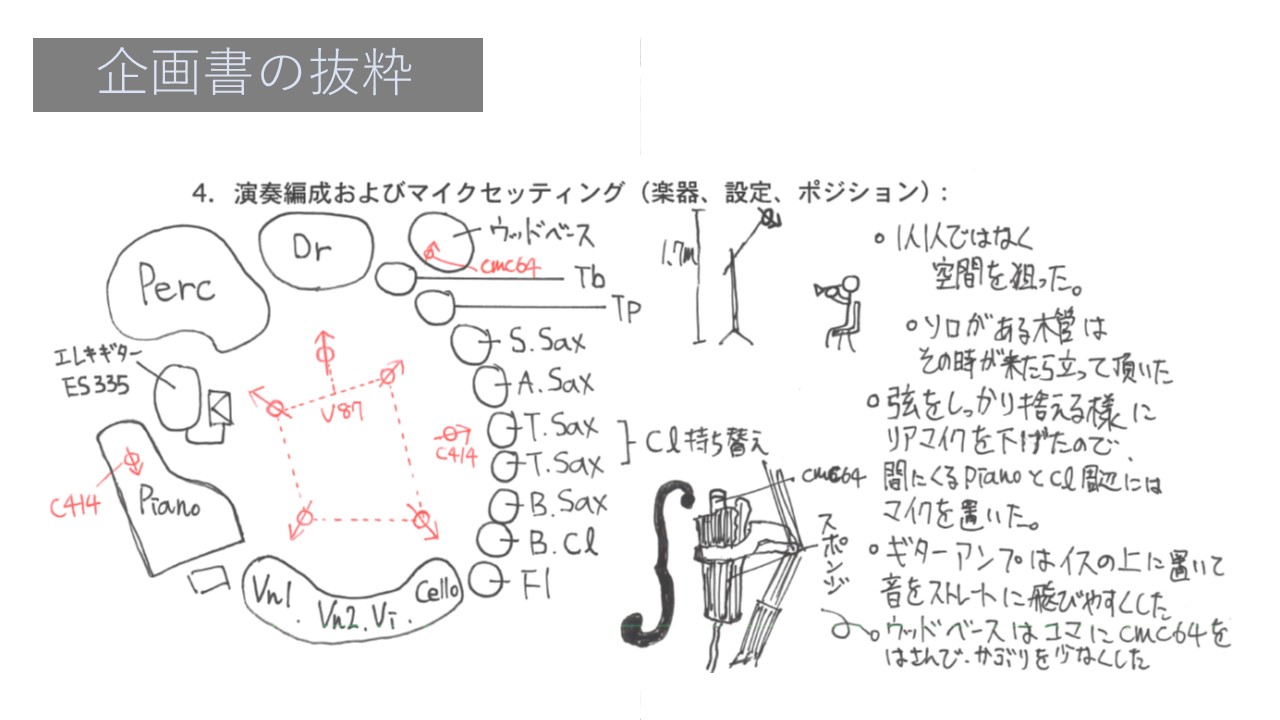 企画書の抜粋
4. 演奏編成およびマイクセッティング（楽器、設定、ポジション）:
Perc
Dr
ウッドベース
cmc64
Tb
Tp
S.Sax
A.Sax
T.Sax
T.Sax
Cl持ち替え
B.Sax
B.Cl
Fl
エレキギター
ES335
U87
C414
C414
Piano
Vn1. Vn2. Vi. Cello
1.7m
cmc64
スポンジ
○ 1人1人ではなく
空間を狙った。
○ ソロがある木管は
その時が来たら立って頂いた
○ 弦をしっかり捨える様に
リアマイクを下げたので、
間にくるPianoとCl周辺には
マイクを置いた。
○ ギターアンプはイスの上に置いて
音をストレートに飛びやすくした
○ ウッドベースはコマにcmc64を
はさんで、かぶりを少なくした